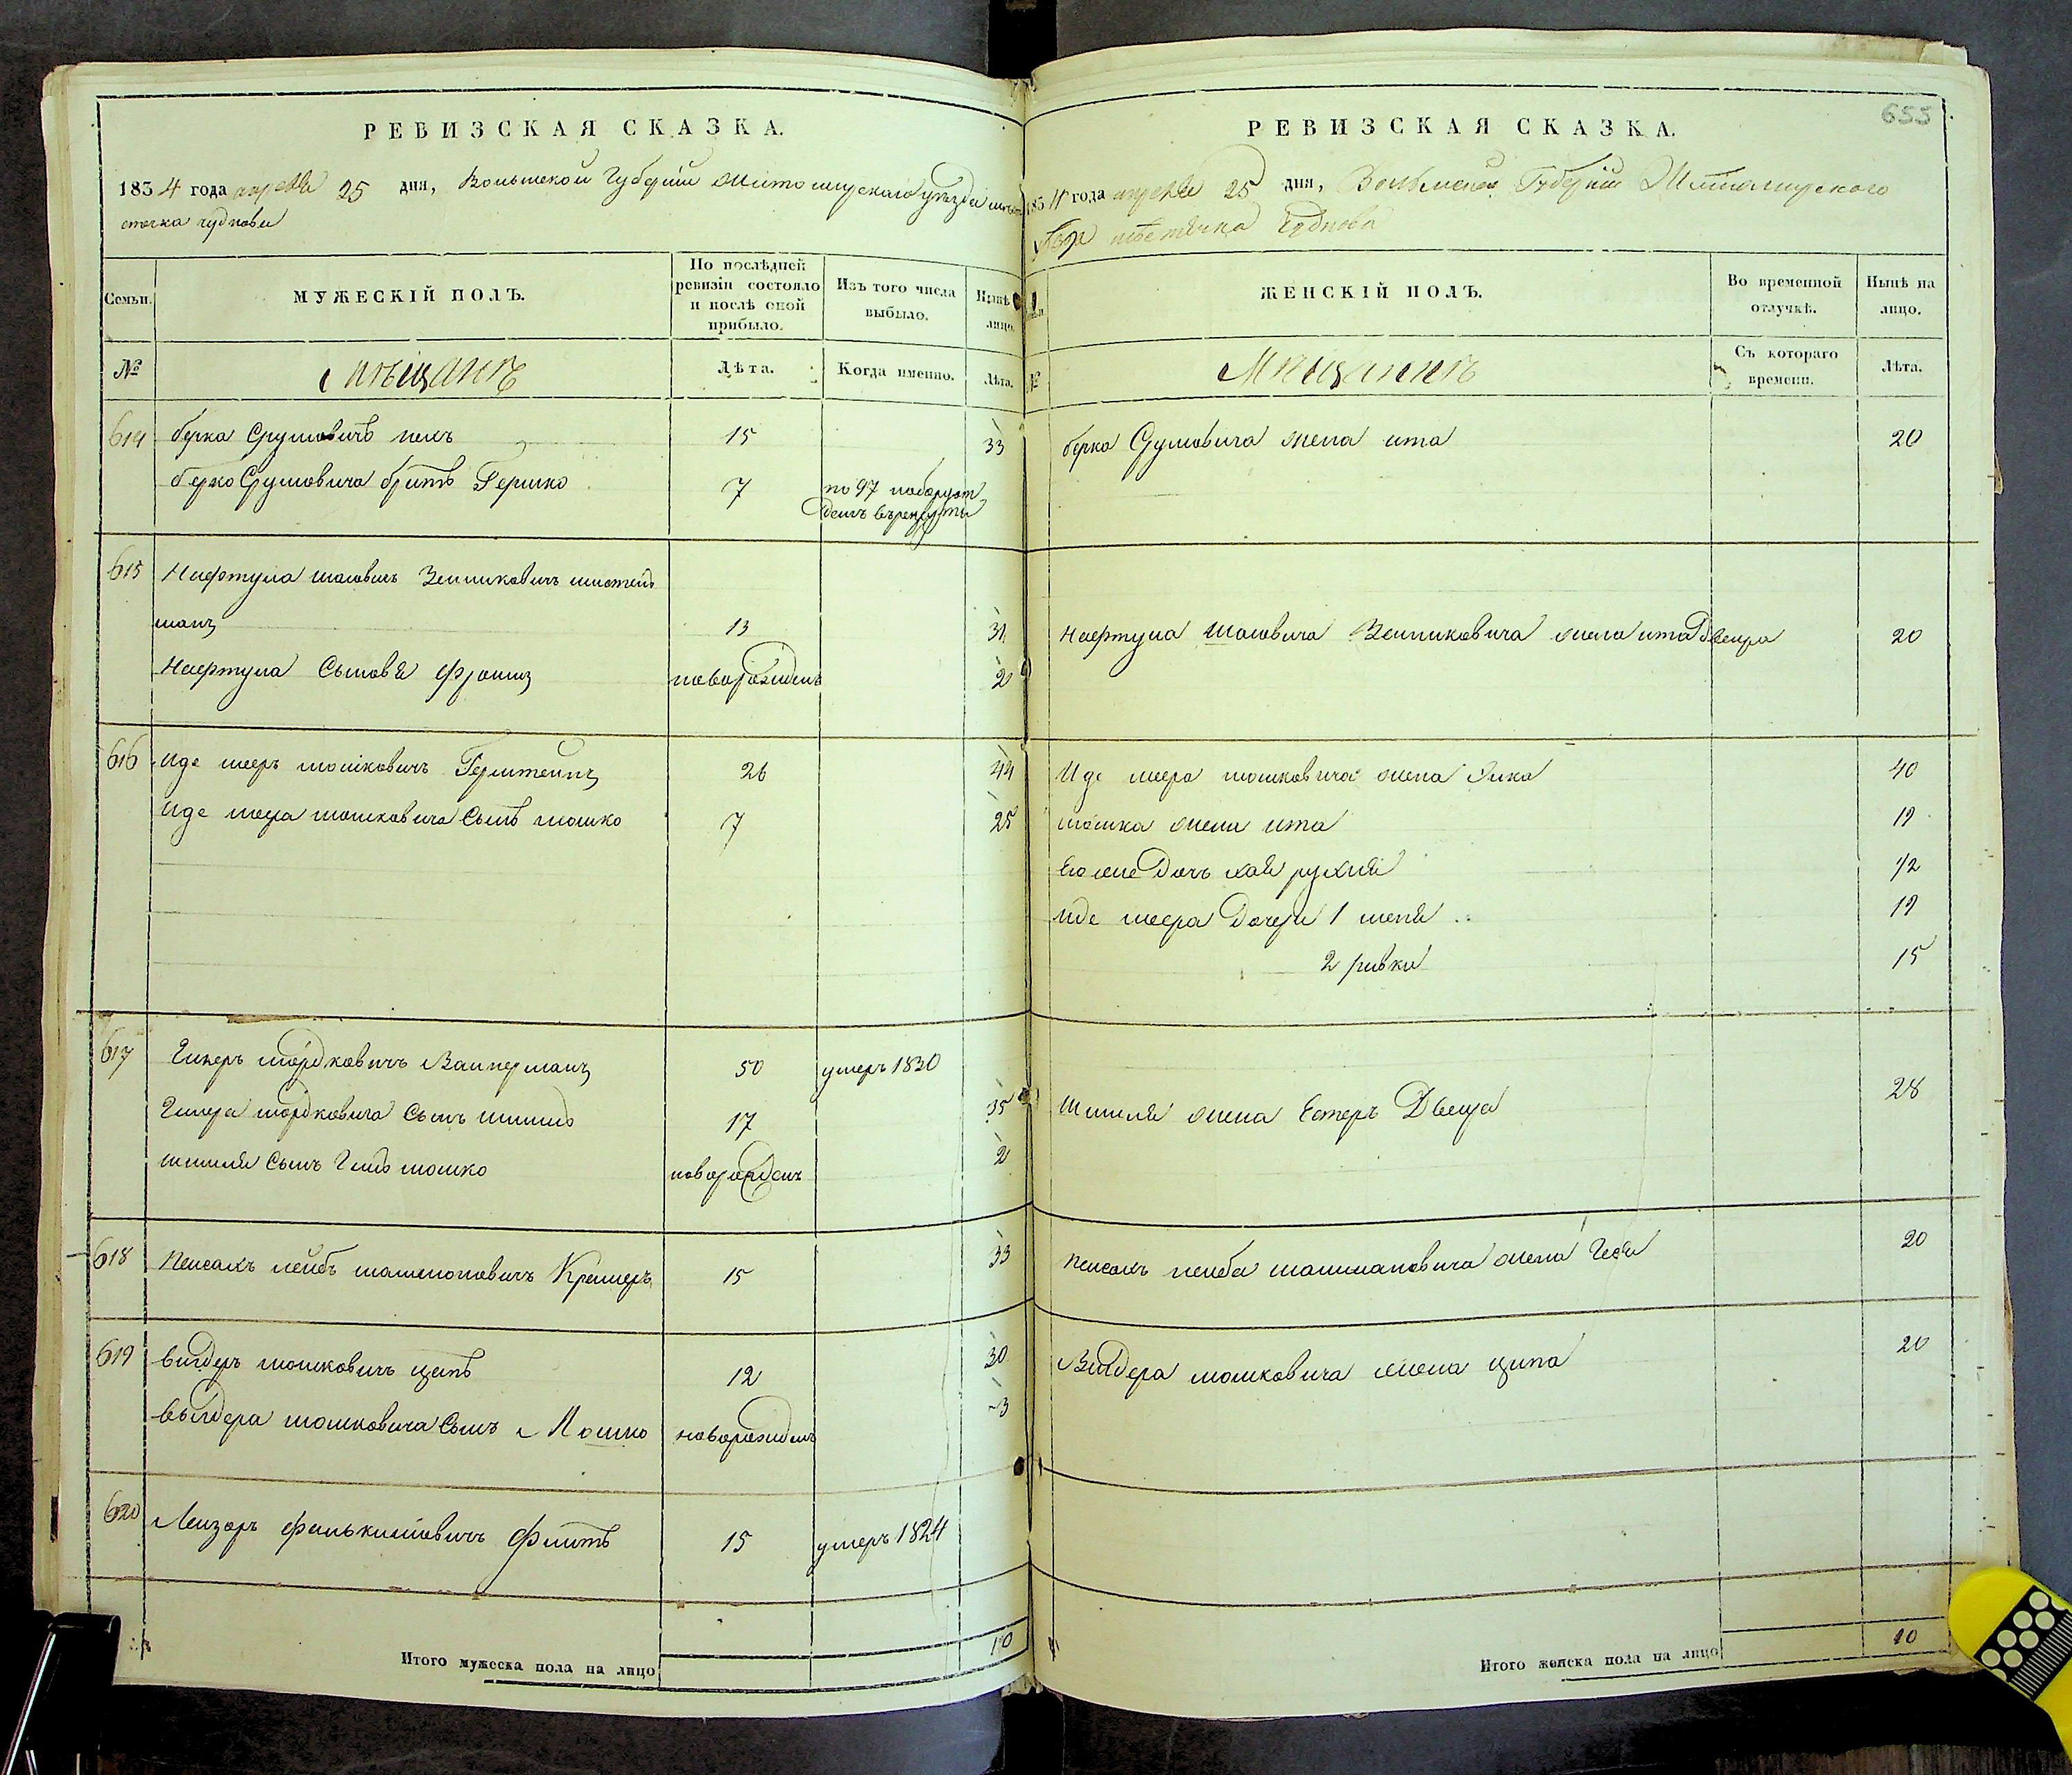 РЕВИЗСКАЯ СКАЗКА.
1834 года апреля 25 дня, Волынской Губернии Житомирского уезда мѣ
стечка Чуднова
Семьи.
МУЖЕСКІЙ ПОЛЪ.
По послѣдней ревизіи состояло и послѣ оной прибыло.
Изъ того числа выбыло.
Нынѣ лицо.
№
мѣщанъ
Лѣта.
Когда именно.
Лѣта.
614 берко Срулювичъ 15 33
берко Срулювича братъ Гершко 7 по 97 набору от
денъ въ рекруты
615 Нафтула
13 31
Нафтула Сыновя новорожденъ 2
616 Иде меер мошковичъ Герштейнъ 26 44
Иде меера мошковича Сынъ мошко 7 25
617 мордковичъ Ваннерманъ 50 умеръ 1830
мордковича Сынъ 17 35
Сынъ мошко новорожденъ 2
618 Пейсахъ лейбъ Кремеръ 15 33
619 Вигдеръ мошковичъ 12 30
Вигдера мошковича Сынъ Мошко новорожденъ 3
620 Лейзоръ 15 умеръ 1824
Итого мужеска пола на лицо 10
655
РЕВИЗСКАЯ СКАЗКА.
1834 года апреля 25 дня, Волынской Губерніи Житомирского
уезда мѣстечка Чуднова
ЖЕНСКІЙ ПОЛЪ.
Во временной отлучкѣ.
Нынѣ на лицо.
№
Мѣщанъ
Съ котораго времени.
Лѣта.
берка Срулювича жена ита 20
Нафтула жена ита Двейра 20
Иде меера мошковича жена 40
мошка жена ита 19
его же дочь хая рухля 1/2
иде меера дочери 1 шейня 19
2 ривка 15
жена Естеръ Двейра 28
Пейсахъ лейба жена 20
Вигдера мошковича жена ципа 20
Итого женска пола на лицо 10